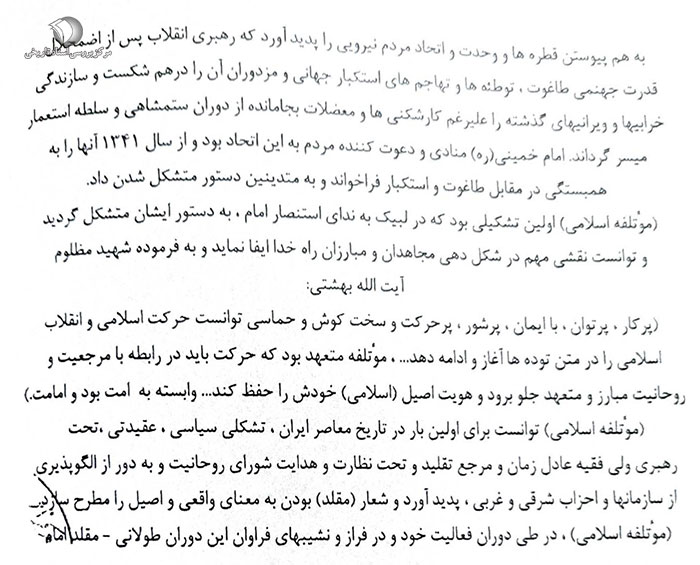 مرکز بررسی اسناد تاریخی
به هم پیوستن قطره ها و وحدت و اتحاد مردم نیرویی را پدید آورد که رهبری انقلاب پس از اضمحلال
قدرت جهنمی طاغوت ، توطئه ها و تهاجم های استکبار جهانی و مزدوران آن را درهم شکست و سازندگی
خرابیها و ویرانیهای گذشته را علیرغم کارشکنی ها و معضلات بجامانده از دوران ستمشاهی و سلطه استعمار
میسر گرداند. امام خمینی(ره) منادی و دعوت کننده مردم به این اتحاد بود و از سال ۱۳۴۱ آنها را به
همبستگی در مقابل طاغوت و استکبار فراخواند و به متدینین دستور متشکل شدن داد.
(مؤتلفه اسلامی) اولین تشکیلی بود که در لبیک به ندای استنصار امام ، به دستور ایشان متشکل گردید
و توانست نقشی مهم در شکل دهی مجاهدان و مبارزان راه خدا ایفا نماید و به فرموده شهید مظلوم
آیت الله بهشتی:
(پرکار ، پرتوان ، با ایمان ، پرشور ، پرحرکت و سخت کوش و حماسی توانست حرکت اسلامی و انقلاب
اسلامی را در متن توده ها آغاز و ادامه دهد... ، مؤتلفه متعهد بود که حرکت باید در رابطه با مرجعیت و
روحانیت مبارز و متعهد جلو برود و هویت اصیل (اسلامی) خودش را حفظ کند... وابسته به امت بود و امامت.)
(مؤتلفه اسلامی) توانست برای اولین بار در تاریخ معاصر ایران ، تشکلی سیاسی ، عقیدتی ،تحت
رهبری ولی فقیه عادل زمان و مرجع تقلید و تحت نظارت و هدایت شورای روحانیت و به دور از الگوپذیری
از سازمانها و احزاب شرقی و غربی ، پدید آورد و شعار (مقلد) بودن به معنای واقعی و اصیل را مطرح سازد.
(مؤتلفه اسلامی) ، در طی دوران فعالیت خود و در فراز و نشیبهای فراوان این دوران طولانی - مقلد امام